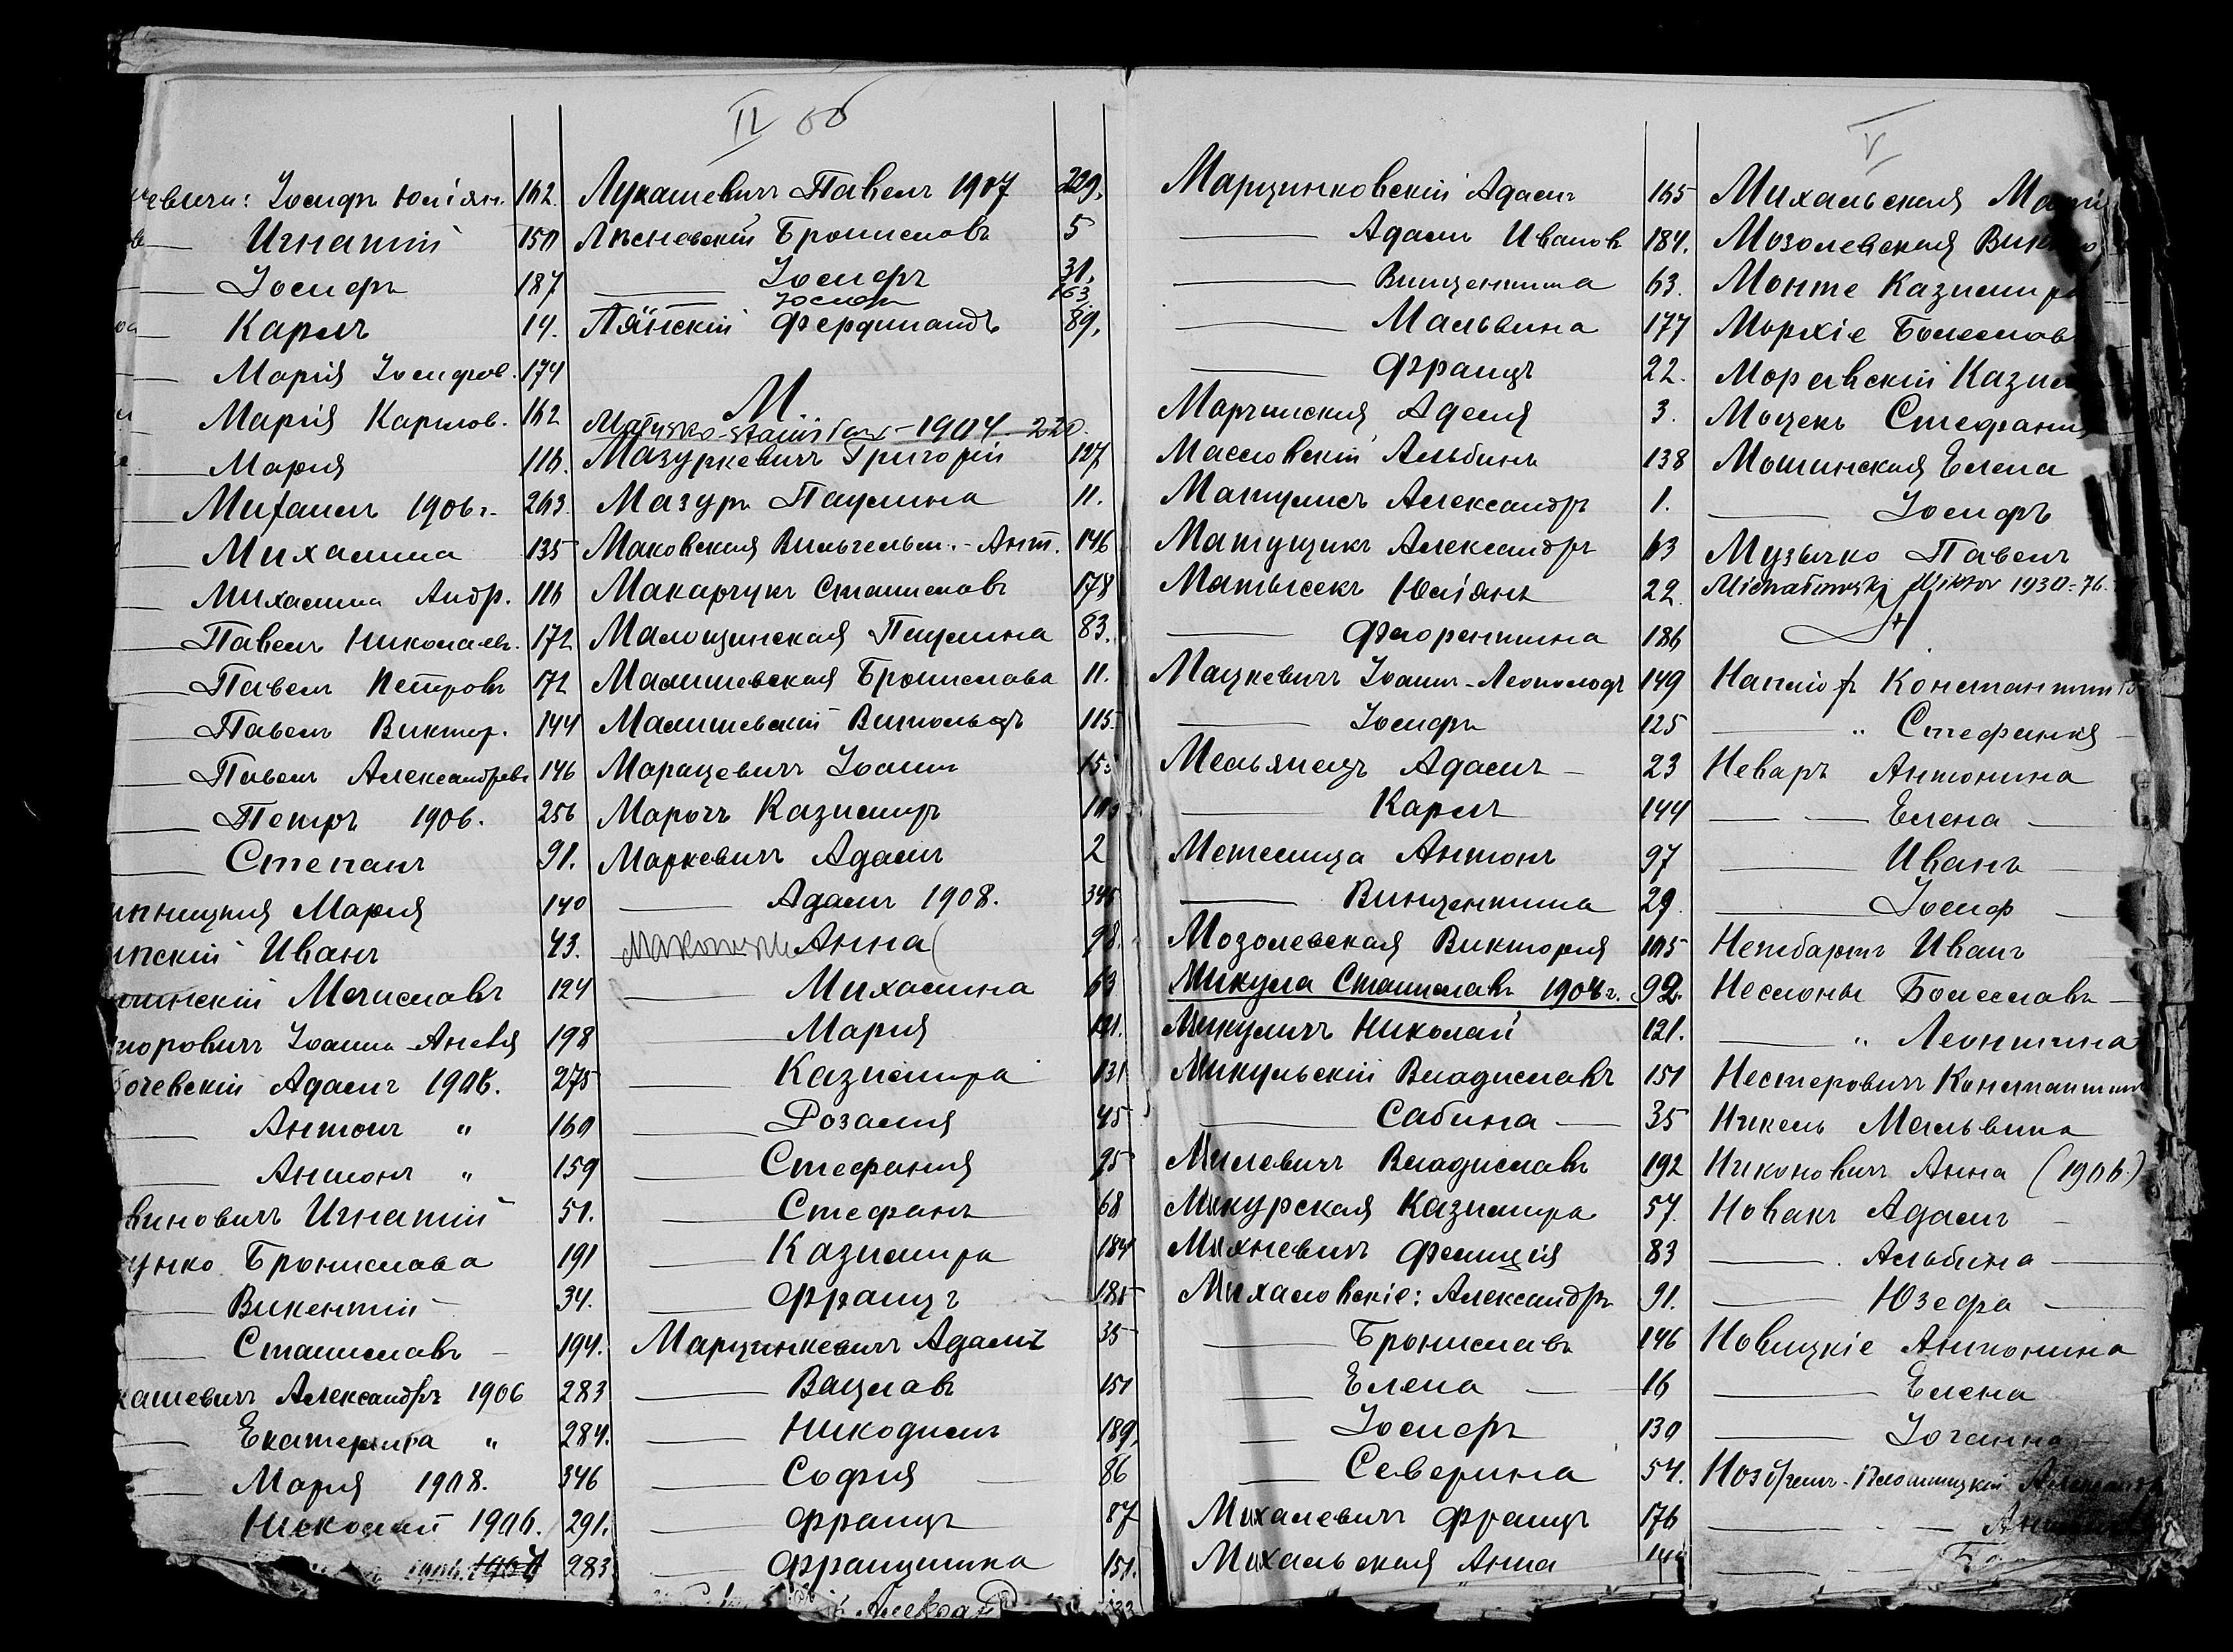 II
чевичи: Іосифъ Юліян. 162.
Игнатій 150
Іосифъ 187
Карлъ 14.
Марія Іосифов. 174
Марія Карлов. 162
Марія 116.
Михаилъ 1906 г. 263.
Михалина 135
Михалина Андр. 116
Павелъ Николаев. 172
Павелъ Петровъ 172
Павелъ Виктор. 144
Павелъ Александровъ 146
Петръ 1906. 256
Степанъ 91.
Марія 140
Иванъ 43.
Мечиславъ 124
Іоанна-Анеля 198
Адамъ 1906. 275
Антонъ " 160
Антонъ " 159
виновичъ Игнатій 51.
Бронислава 191
Викентій 34.
Станиславъ 194.
кашевичъ Александръ 1906 283
Екатерина " 284.
Марія 1908. 346
Николай 1906. 291.
1906. 283
Лукашевичъ Павелъ 1907 229.
Лѣсневскій Брониславъ 5
Іосифъ 31.
Іосифъ 163.
Лянскій Фердинандъ 89.
М.
Matysko-Stanisław-1904. 220.
Мазуркевичъ Григорій 127
Мазуръ Паулина 11.
Маковская Вильгельм.-Ант. 146
Макарчукъ Станиславъ 178
Малощинская Паулина 83.
Малишевская Бронислава 11.
Малишевскій Витольдъ 115.
Марацевичъ Іоаннъ
Марочъ Казимиръ
Маркевичъ Адамъ 2
Адамъ 1908. 345
Анна 98.
Михалина 63
Марія 121.
Казимира 131
Розалия 45
Стефанія 95
Стефанъ 68
Казимира 184
Францъ 185
Марцинкевичъ Адамъ 35
Вацлавъ 151
Никодимъ 189.
Софія 86
Францъ 87
Францишка 151.
V
Марцинковскій Адамъ 165
Адамъ Ивановъ 184.
Винцентина 63.
Мальвина 177
Францъ 22.
Марчинская Аделя 3.
Масловскій Альбинъ 138
Матулисъ Александръ 1.
Матущикъ Александръ 63
Матысекъ Юліянъ 22.
Флорентина 186
Мацкевичъ Іоаннъ-Леопольдъ 149
Іосифъ 125
Мельянецъ Адамъ 23
Карлъ 144
Метелица Антонъ 97
Винцентина 29.
Мозолевская Викторія 105
Микула Станиславъ 1908 г. 92.
Микуличъ Николай 121.
Микульскій Владиславъ 151
Сабина 35
Милевичъ Владиславъ 192
Микурская Казимира 57.
Михневичъ Фелиція 83
Михаловскіе: Александръ 91.
Брониславъ 146
Елена 16
Іосифъ 130
Северина 54.
Михалевичъ Францъ 176
Михальская Анна
Михальская
Мозолевская
Монте Казимира
Морхіе Болеслав
Моравскій
Моцекъ Стефания
Мошинская Елена
Іосифъ
Музычко Павелъ
Michałowski Wiktor 1930-76.
Н
Константинъ
" Стефанія
Неваръ Антонина
Елена
Иванъ
Іосиф
Нембаръ Иванъ
Неслоны Болеславъ
" Леонтина
Нестеровичъ Константинъ
Никель Мальвина
Никоновичъ Анна (1906)
Новакъ Адамъ
Альбина
Юзефа
Новицкіе Антонина
Елена
Іоганна